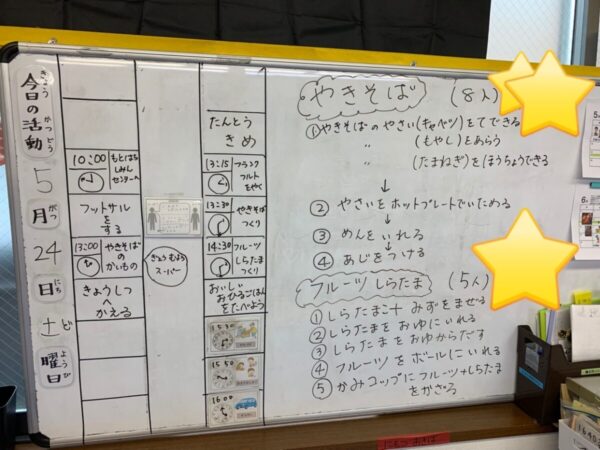 きょう
今日の活動
かつどう
5
月
がつ
24
日
にち
土
ど
曜日
ようび
10:00
もとはち
しみん
センターへ
フットサル
を
する
13:00
やきそば
の
かいもの
きょうしつ
へ
かえる
ぎょうむよう
スーパー
たんとう
きめ
13:15
フランク
フルト
をやく
13:30
やきそば
つくり
14:30
フルーツ
しらたま
つくり
おいしい
おひるごはん
をたべよう
15:30
15:50
16:00
やきそば (8人)
①やきそばのやさい(キャベツ)をてできる
〃 (もやし)をあらう
〃 (たまねぎ)をほうちょうできる
↓
② やさいをホットプレートでいためる
↓
③ めんをいれる
↓
④ あじをつける
フルーツしらたま (5人)
①しらたまこ+みずをまぜる
②しらたまをおゆにいれる
③しらたまをおゆからだす
④フルーツをボールにいれる
⑤かみコップにフルーツ+しらたま
をかざる